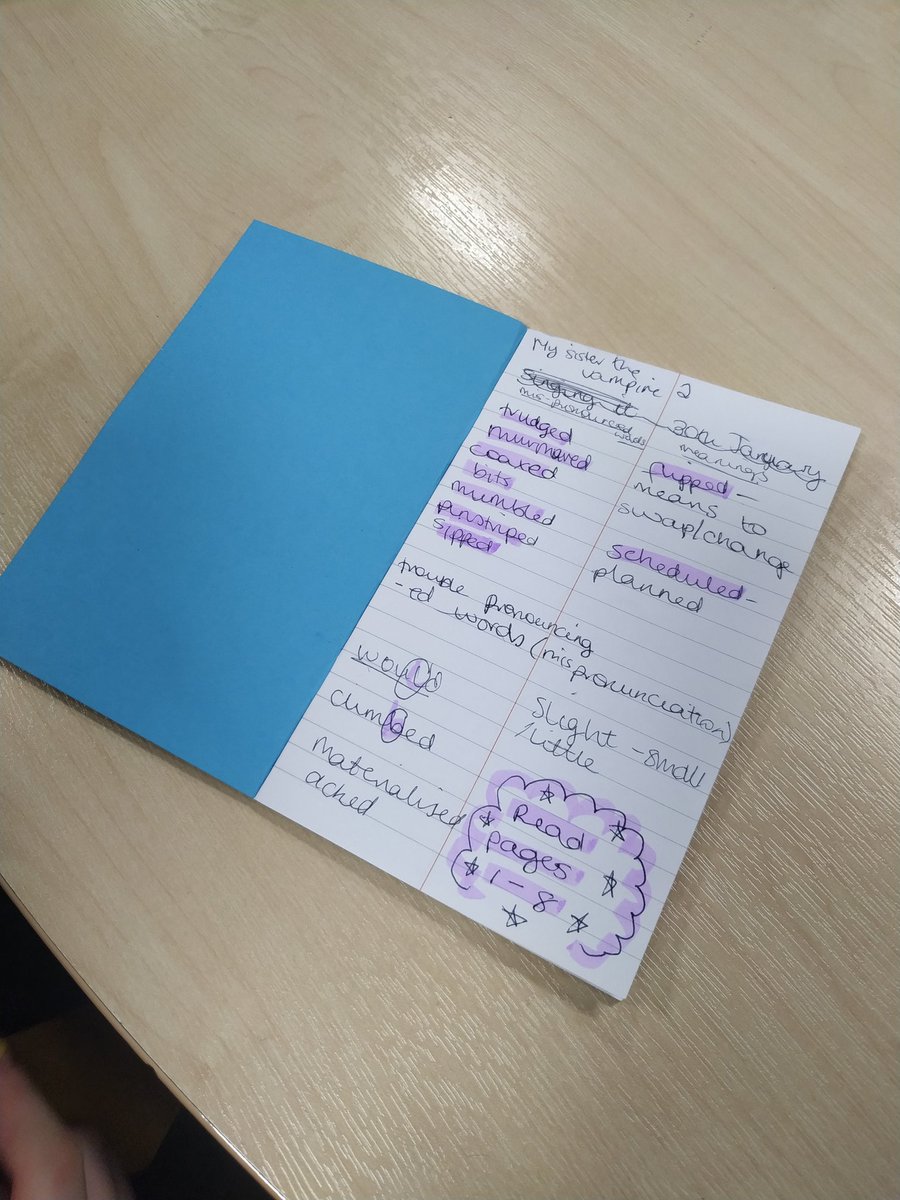 My sister the
vampire 2
mispronounced words
30th January
meanings
trudged
murmured
coaxed
bits
mumbled
pinstriped
sipped
flipped -
means to
swap/change
scheduled -
planned
trouble pronouncing
-ed words (mispronunciation)
would
climbed
materialised
ached
slight - small
/little
Read
pages
1-8